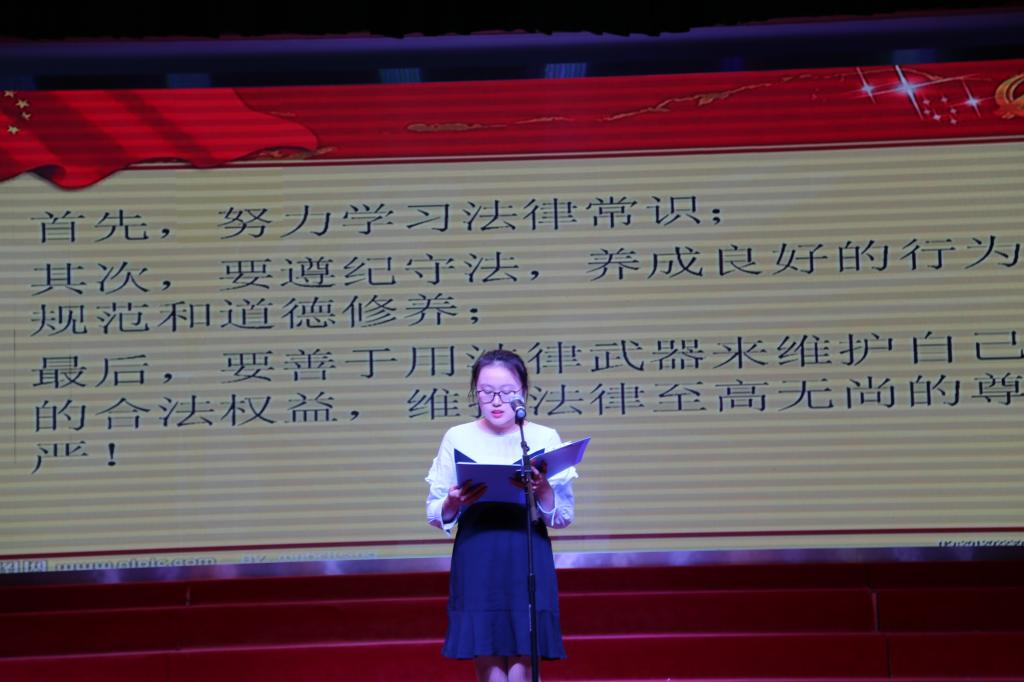 首先，努力学习法律常识；
其次，要遵纪守法，养成良好的行为
规范和道德修养；
最后，要善于用法律武器来维护自己
的合法权益，维 法律至高无尚的尊
严！
www.nipic.com